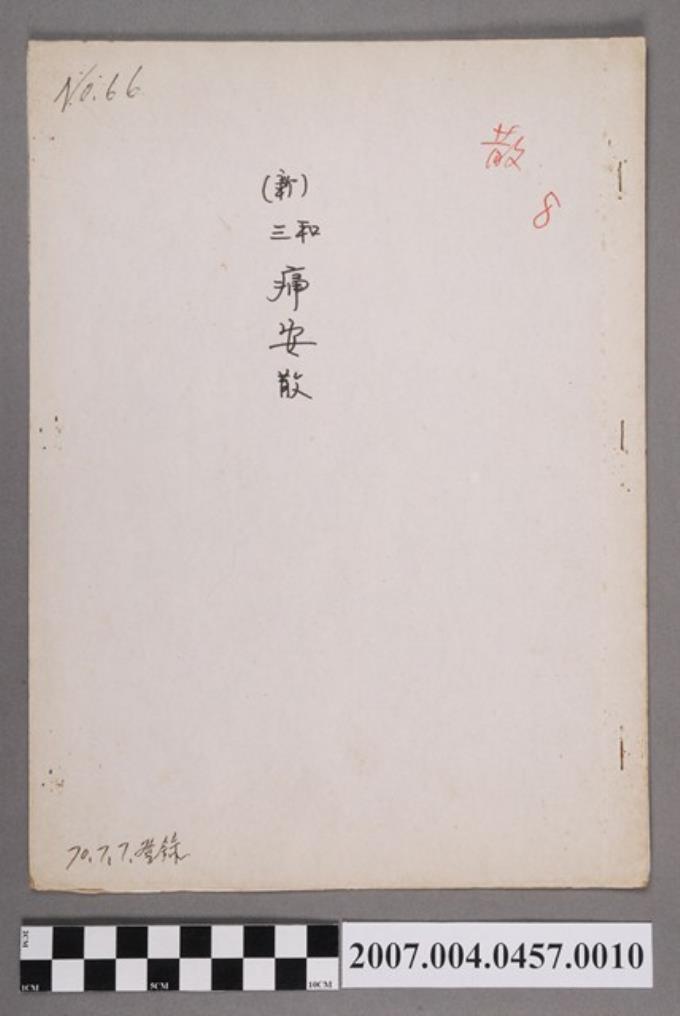 No.66
散
8
(新)
三和
痛
安
散
70.7.7.登錄
2CM
1CM
5CM
10CM
2007.004.0457.0010